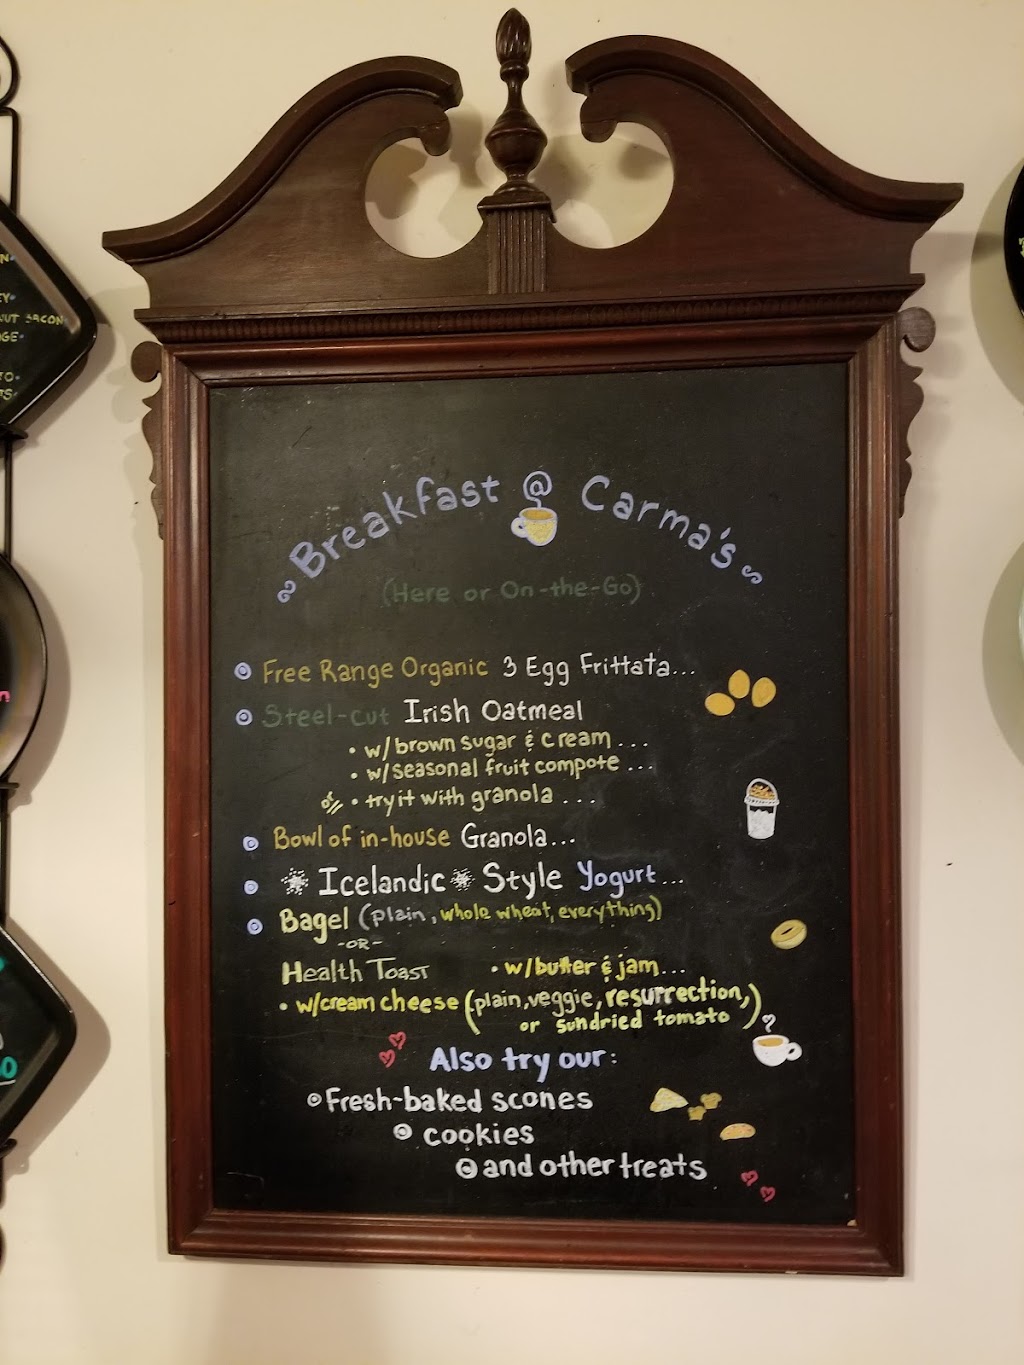 ~Breakfast @ Carma's~
(Here or On-the-Go)
Free Range Organic 3 Egg Frittata...
Steel-cut Irish Oatmeal
• w/brown sugar & cream ...
• w/seasonal fruit compote ...
or • try it with granola ...
Bowl of in-house Granola...
Icelandic Style Yogurt...
Bagel (plain, whole wheat, everything)
-OR-
Health Toast • w/butter & jam...
• w/cream cheese (plain, veggie, resurrection,
or sundried tomato)
Also try our:
Fresh-baked scones
cookies
and other treats
BACON